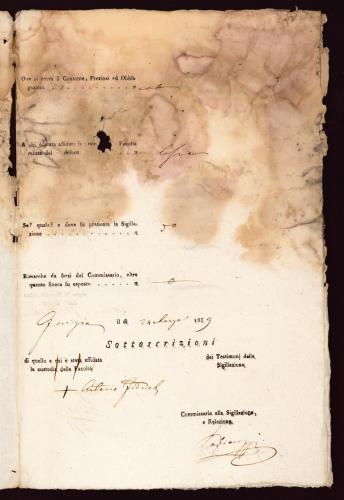 Ove si trova il Contante, Preziosi ed Obbli-
gazioni
A chi è stata affidata la Facoltà
relitta dal defunto
Se? quale? e dove fu praticata la Sigilla-
zione
Rimarche da farsi dal Commissario, oltre
quanto finora fu esposto
Gorizia il dì 24 Marzo 1829
Sottoscrizioni
di quello a cui è stata affidata
la custodia della Facoltà
dei Testimonj della
Sigillazione.
+ Antonio
Commissario alla Sigillazione,
e Relazione.